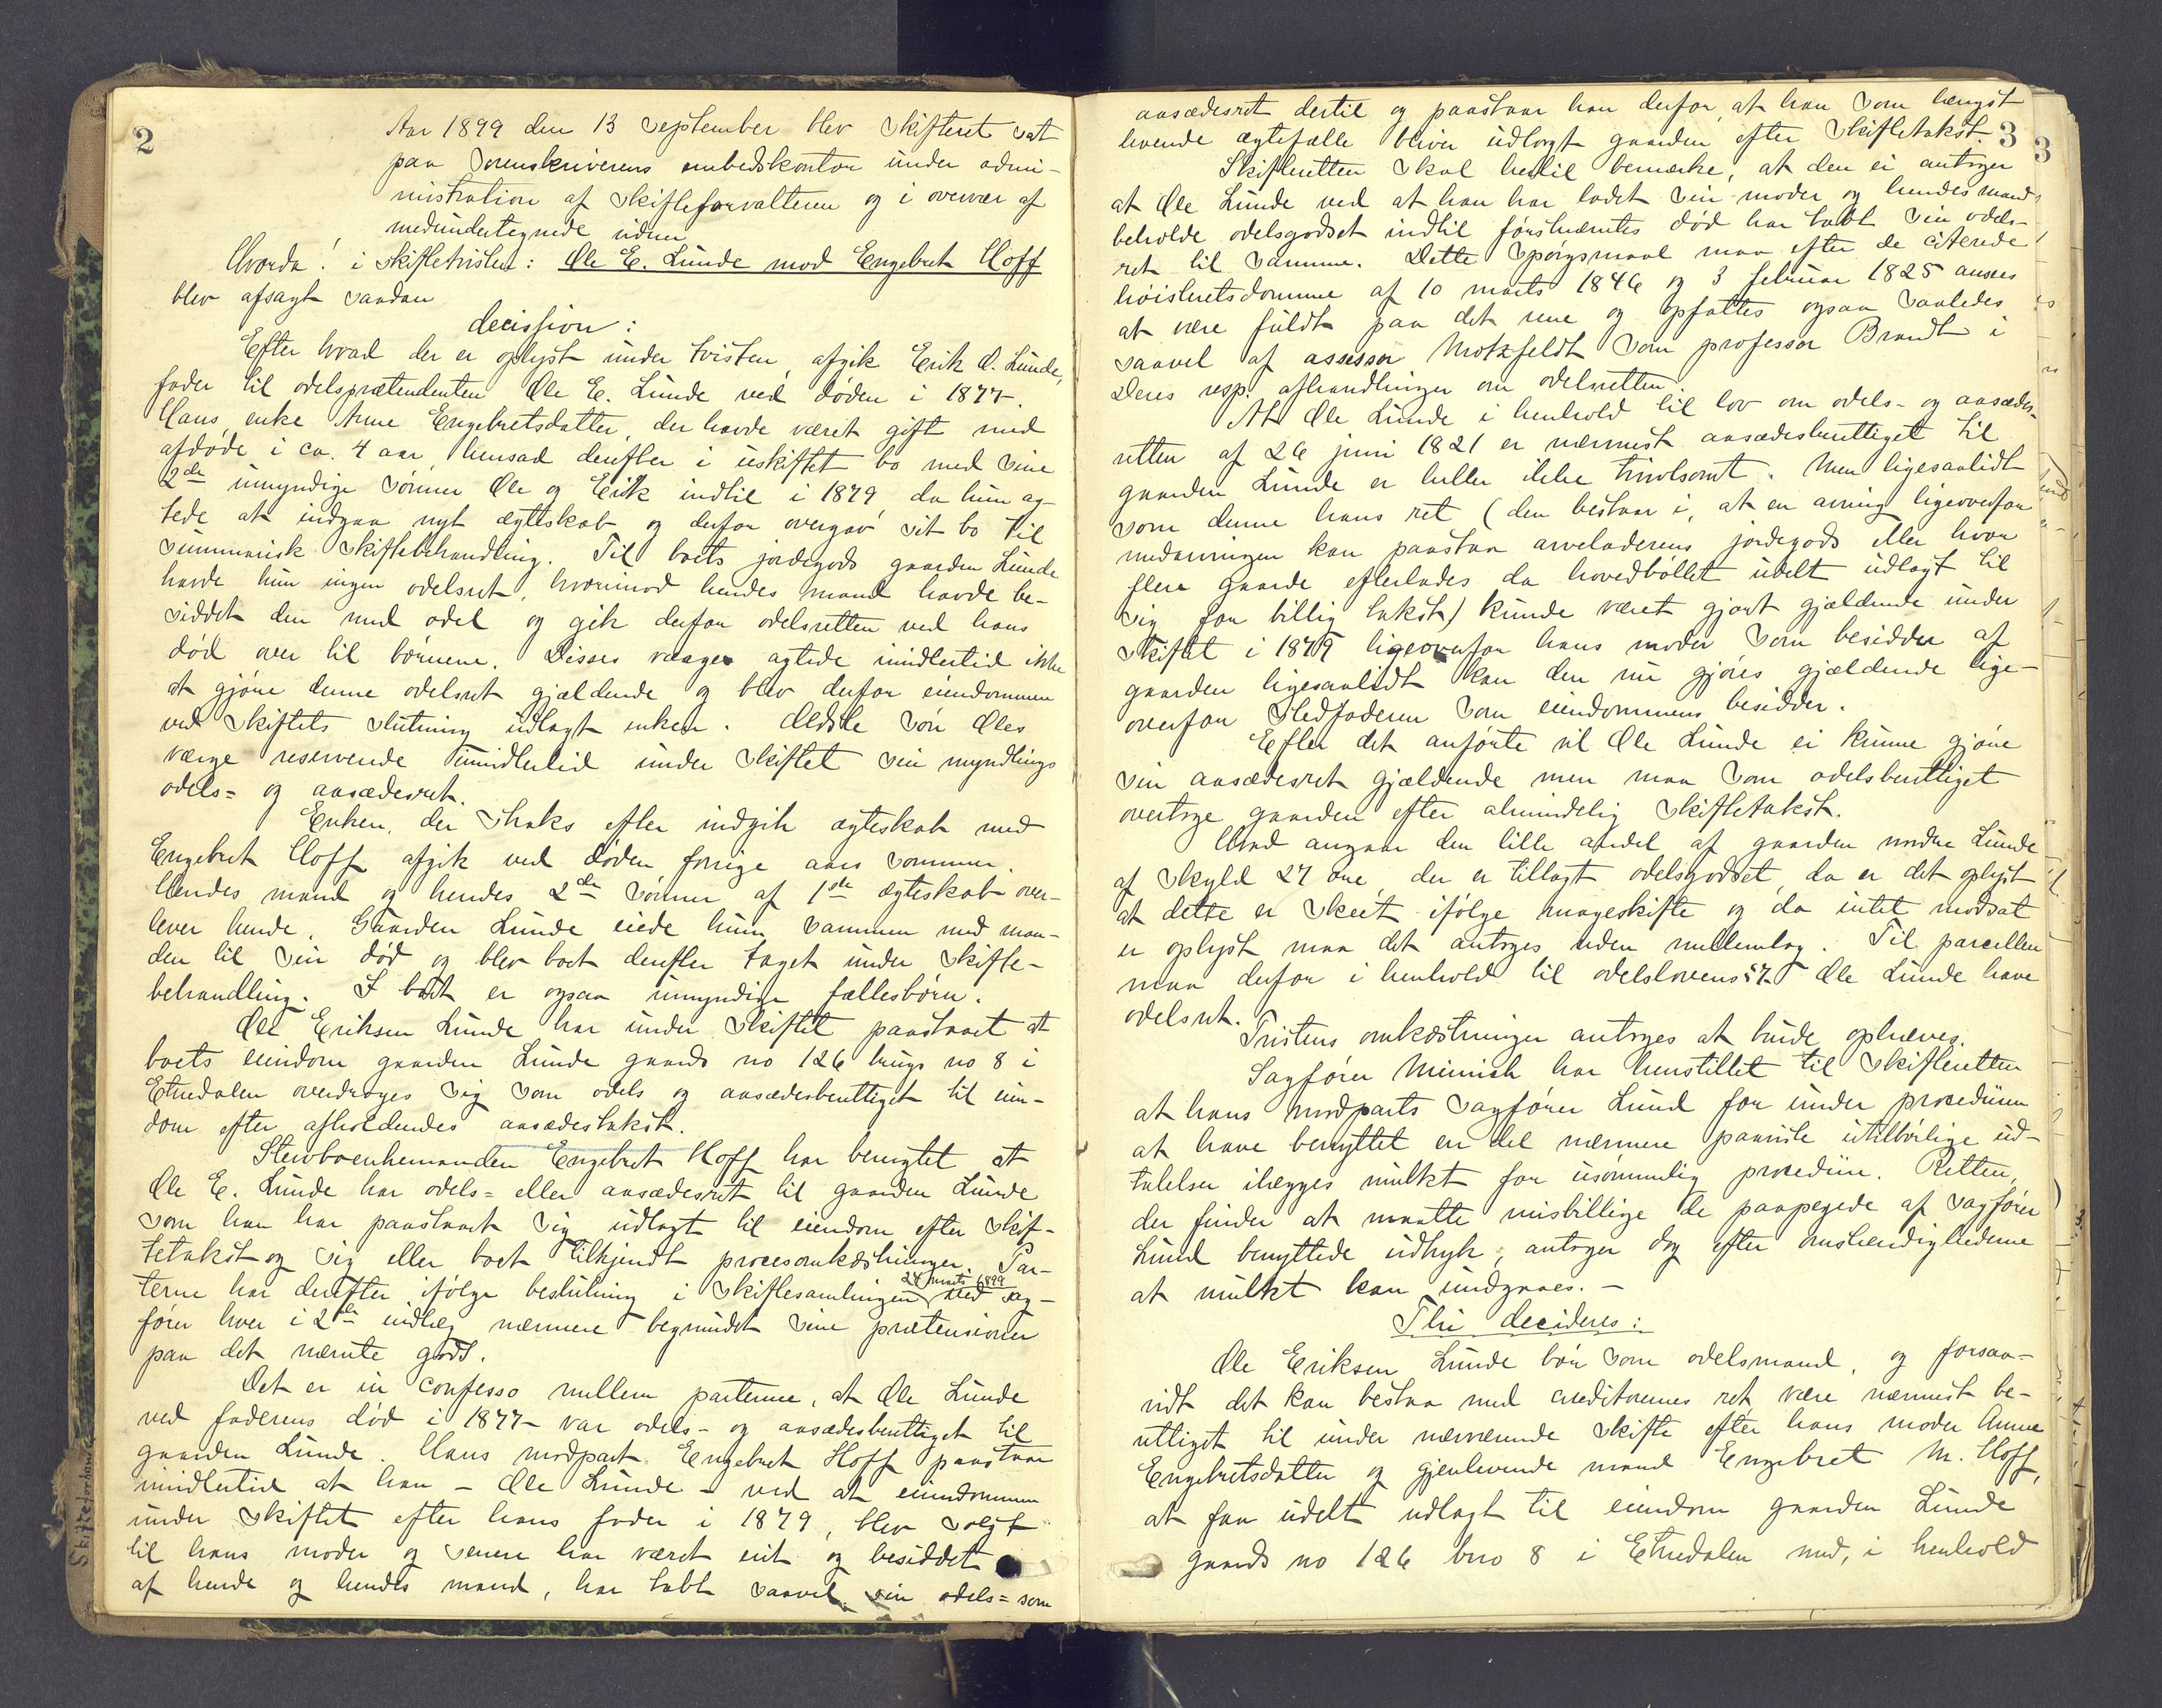 2
Aar 1899 den 13 september blev skifteret sat
paa Sorenskriverens embedskontor under admi-
nistration af skifteforvalteren og i overvær af
medundertegnede vidner
Hvorda! i skiftetvisten: Ole E. Lunde mod Engebret Hoff
blev afsagt saadan
decission:
Efter hvad der er oplyst under tvisten, afgik Erik O. Lunde,
fader til odelsprætendenten Ole E. Lunde ved døden i 1877.
Hans enke Anne Engebretsdatter, der havde været gift med
afdøde i ca. 4 aar, hensad derefter i uskiftet bo med sine
2de umyndige sønner Ole og Erik indtil i 1879, da hun ag-
tede at indgaa nyt ægteskab og derfor overgav sit bo til
summarisk skiftebehandling. Til boets jordegods gaarden Lunde
havde hun ingen odelsret, hvorimod hendes mand havde be-
siddet den med odel og gik derfor odelsretten ved hans
død over til børnene. Disses værger agtede imidlertid ikke
at gjøre denne odelsret gjældende og blev derfor eiendommen
ved skiftets slutning udlagt enken. Ældste søn Oles
værge reserverede imidlertid under skiftet sin myndlings
odels= og aasædesret.
Enken, der straks efter indgik ægteskab med
Engebret Hoff afgik ved døden forrige aars sommer.
Hendes mand og hendes 2de sønner af 1ste ægteskab over-
lever hende. Gaarden Lunde eiede hun sammen med man-
den til sin død og blev boet derefter taget under skifte-
behandling. I boet er ogsaa umyndige fællesbørn.
Ole Eriksen Lunde har under skiftet paastaaet at
boets eiendom gaarden Lunde gaards no 126 brugs no 8 i
Etnedalen overdrages sig som odels og aasædesberettiget til eien-
dom efter afholdendes aasædestakst.
Stervboenkemanden Engebret Hoff har benegtet at
Ole E. Lunde har odels= eller aasædesret til gaarden Lunde
som han har paastaaet sig udlagt til eiendom efter skif-
tetakst og sig eller boet tilkjendt procesomkostninger. Par-
terne har derefter ifølge beslutning i skiftesamlingen 24 marts 1899 ved sag-
fører hver i 2de indlæg nærmere begrundet sine prætensioner
paa det nævnte gods.
Det er in confesso mellem parterne, at Ole Lunde
ved faderens død i 1877 var odels- og aasædesberettiget til
gaarden Lunde. Hans modpart Engebret Hoff paastaar
imidlertid at han – Ole Lunde – ved at eiendommen
under skiftet efter hans fader i 1879, blev solgt
til hans moder og senere har været eiet og besiddet
af hende og hendes mand, har tabt saavel sin odels= som
3
aasædesret dertil og paastaar han derfor, at han som længst
levende ægtefælle bliver udlagt gaarden efter skiftetakst.
Skifteretten skal hertil bemærke, at den ei antager
at Ole Lunde ved at han har ladet sin moder og hendes mand
beholde odelsgodset indtil førstnævntes død har tabt sin odels-
ret til samme. Dette spørgsmaal maa efter de citerede
høiesteretsdomme af 10 marts 1846 og 3 februar 1825 ansees
at være fuldt paa det rene og opfattes ogsaa saaledes
saavel af assessor Motzfeldt som professor Brandt i
deres resp. afhandlinger om odelsretten.
At Ole Lunde i henhold til lov om odels- og aasædes-
retten af 26 juni 1821 er nærmest aasædesberettiget til
gaarden Lunde er heller ikke tvivlsomt. Men ligesaalidt
som denne hans ret (den bestaar i, at en arving ligeoverfor
medarvingen kan paastaa arveladerens jordegods eller hvor
flere gaarde efterlades da hovedbøllet udelt udlagt til
sig for billig takst) kunde været gjort gjældende under
skiftet i 1879 ligeoverfor hans moder som besidder af
gaarden ligesaalidt kan den nu gjøres gjældende lige-
overfor stedfaderen som eiendommens besidder.
Efter det anførte vil Ole Lunde ei kunne gjøre
sin aasædesret gjældende men maa som odelsberettiget
overtage gaarden efter almindelig skiftetakst.
Hvad angaar den lille andel af gaarden nordre Lunde
af skyld 27 øre, der er tillagt odelsgodset, da er det oplyst
at dette er skeet ifølge mageskifte og da intet modsat
er oplyst maa det antages uden mellemlag. Til parcellen
maa derfor i henhold til odelslovens § 7 Ole Lunde have
odelsret.
Tvistens omkostninger antages at burde ophæves.
Sagfører Minnich har henstillet til skifteretten
at hans modparts sagfører Lund for under proceduren
at have benyttet en del nærmere paaviste utilbørlige ud-
talelser ilægges mulkt for usømmelig procedure. Retten,
der finder at maatte misbillige de paapegede af sagfører
Lund benyttede udtryk, antager dog efter omstændighederne
at mulkt kan undgaaes. –
Thi decideres:
Ole Eriksen Lunde bør som odelsmand, og forsaa-
vidt det kan bestaa med creditorernes ret, være nærmest be-
rettiget til under nærværende skifte efter hans moder Anne
Engebretsdatter og gjenlevende mand Engebret M. Hoff,
at faa udelt udlagt til eiendom gaarden Lunde
gaards no 126 bno 8 i Etnedalen med, i henhold
3
Skifteforhand